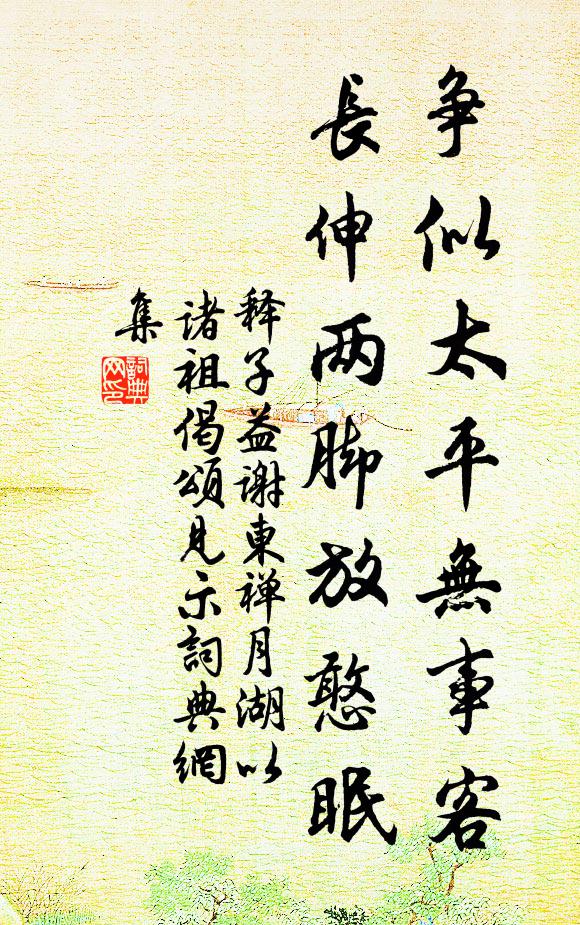 争似太平無事客
長伸两脚放憨眠
释子益谢東禅月湖以
诸祖偈頌見示詞典網
集
詞典
网印